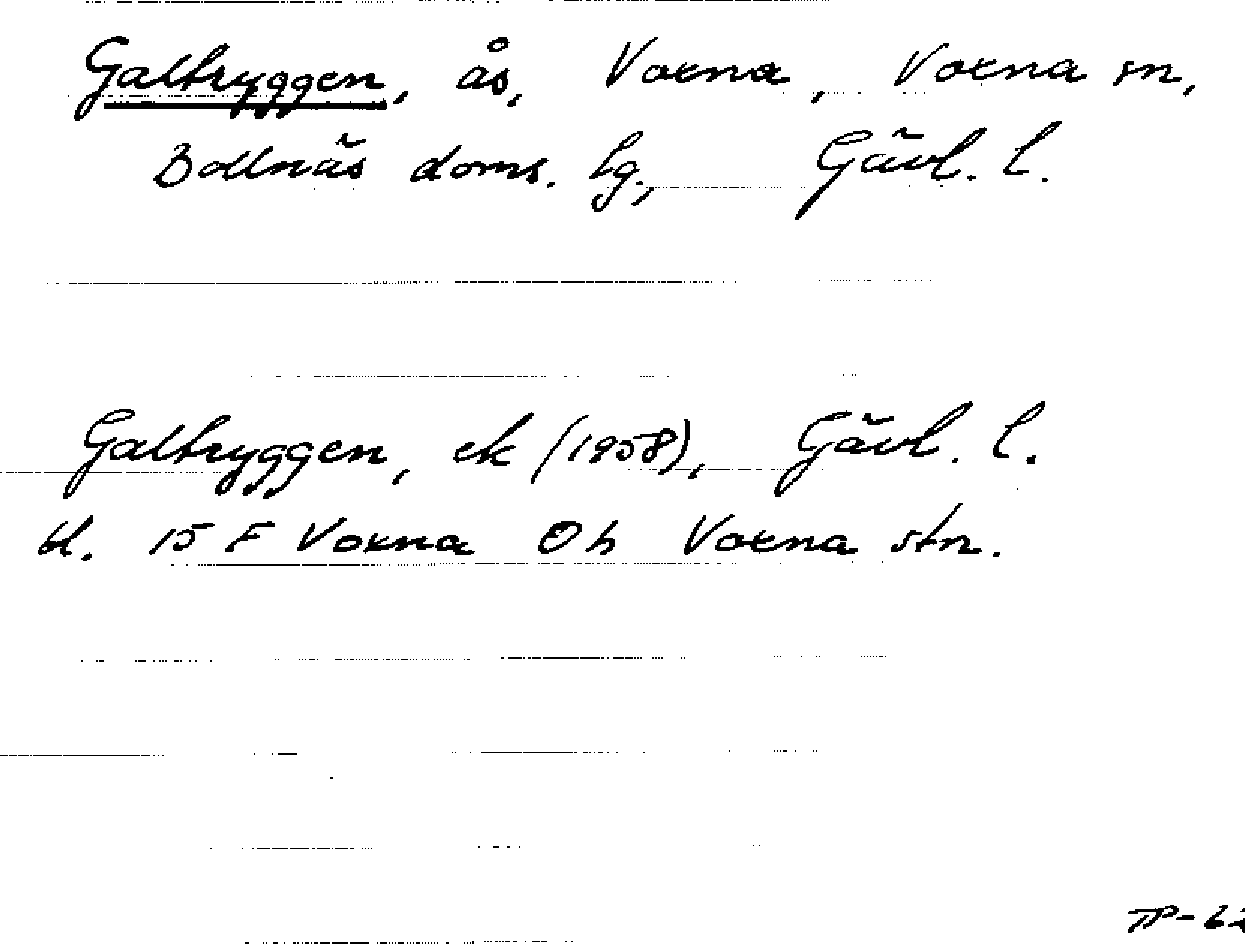 Galtryggen, ås, Voxna, Voxna sn,
Bollnäs doms. lg., Gävl. l.
Galtryggen, ek (1958), Gävl. l.
bl. 15 F Voxna Ob Voxna stn.
TP-62